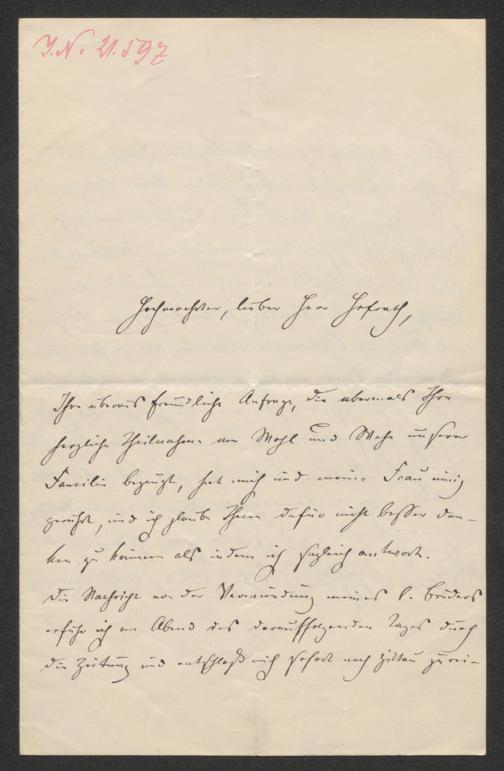 I.N. 21.597
Hochverehrter, lieber Herr Hofrath,
Ihre überaus freundliche Anfrage, die abermals Ihre
herzliche Theilnahme am Wohl und Wehe unserer
Familie bezeugt, hat mich und meine Frau innig
gerührt, und ich glaube Ihnen dafür nicht besser dan-
ken zu können als indem ich sogleich antworte.
Die Nachricht von der Verwundung meines l. Bruders
erfuhr ich am Abend des darauffolgenden Tages durch
die Zeitung und entschloß mich sofort nach Zittau zu rei-